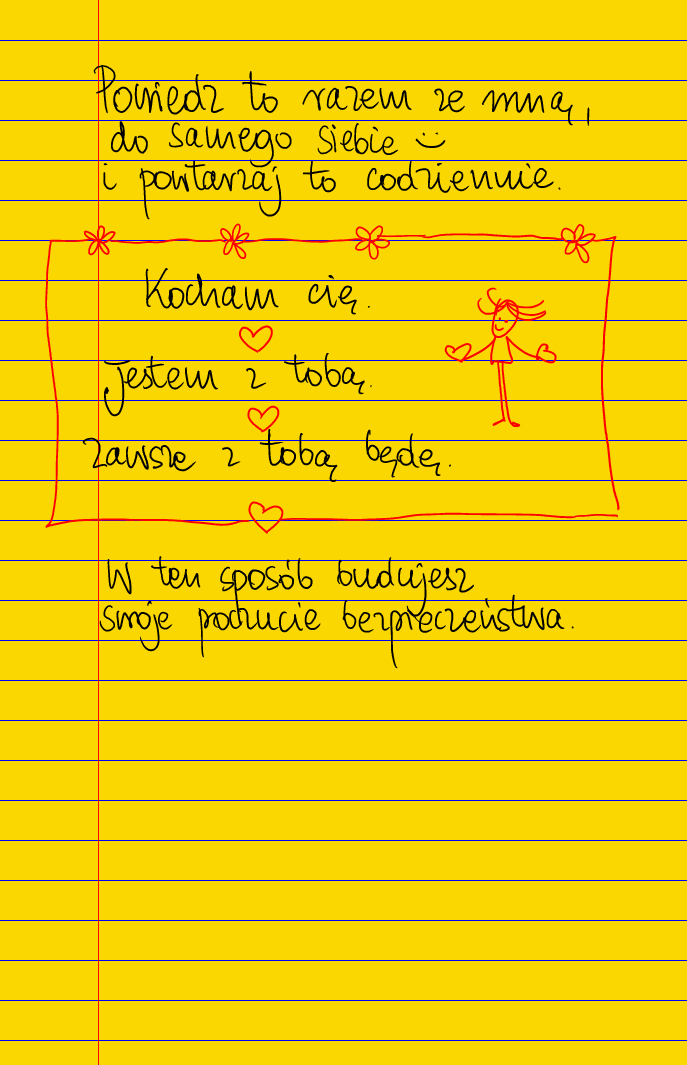 Powiedz to razem ze mną,
do samego siebie :)
i powtarzaj to codziennie.
Kocham cię.
Jestem z tobą.
Zawsze z tobą będę.
W ten sposób budujesz
swoje poczucie bezpieczeństwa.